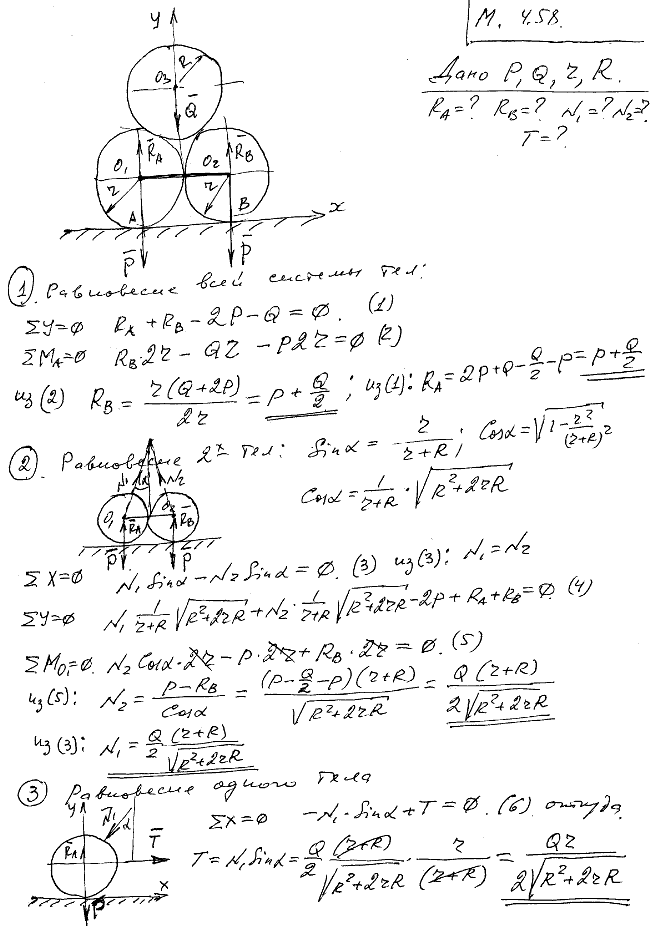 М. 4.58.
Дано P, Q, r, R.
R_A=? R_B=? N₁=? N₂=?
T=?
y
O₃ R
Q̄
O₁ R̄_A O₂ R̄_B
r r
A B x
P̄ P̄
① Равновесие всей системы тел:
ΣY=0 R_A + R_B − 2P − Q = 0. (1)
ΣM_A=0 R_B·2r − Qr − P2r = 0 (2)
из (2) R_B = r(Q+2P)/2r = P + Q/2; из(1): R_A = 2P+Q−Q/2−P = P+Q/2
② Равновесие 2ˣ тел: Sinα = r/(r+R); Cosα = √(1 − r²/(r+R)²)
Cosα = 1/(r+R) · √(R²+2rR)
N₁ α N₂
O₁ R̄_A O₂ R̄_B
P̄ P̄
ΣX=0 N₁ Sinα − N₂ Sinα = 0. (3) из(3): N₁ = N₂
ΣY=0 N₁ 1/(r+R) √(R²+2rR) + N₂· 1/(r+R) √(R²+2rR) − 2P + R_A + R_B = 0. (4)
ΣM_O₁=0. N₂ Cosα·2r − P·2r + R_B·2r = 0. (5)
из(5): N₂ = (P−R_B)/Cosα = (P−Q/2−P)(r+R)/√(R²+2rR) = Q(r+R)/2√(R²+2rR)
из(3): N₁ = Q/2 (r+R)/√(R²+2rR)
③ Равновесие одного тела
y N̄₁ α T̄
R̄_A
x
P̄
ΣX=0 −N₁·Sinα + T = 0. (6) откуда
T = N₁Sinα = Q/2 (r+R)/√(R²+2rR) · r/(r+R) = Qr/2√(R²+2rR)